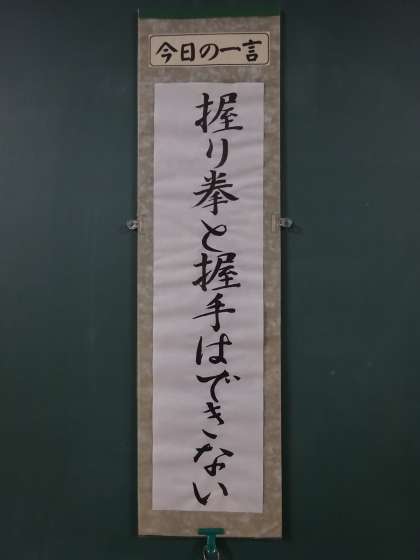 今日の一言
握り拳と握手はできない